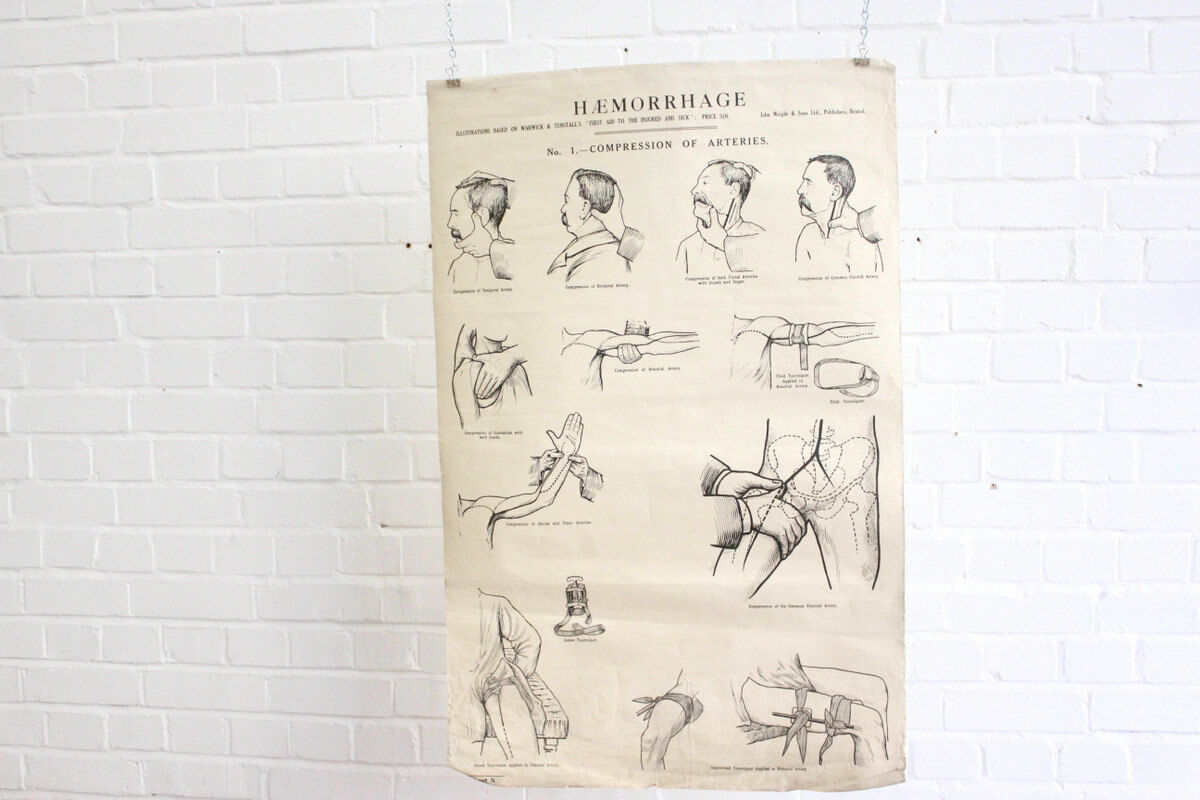 HÆMORRHAGE
ILLUSTRATIONS BASED ON WARWICK & TUNSTALL'S "FIRST AID TO THE INJURED AND SICK": PRICE 3/6. John Wright & Sons Ltd., Publishers, Bristol.
No. 1.—COMPRESSION OF ARTERIES.
Compression of Temporal Artery.
Compression of Occipital Artery.
Compression of both Facial Arteries
with thumb and finger.
Compression of Common Carotid Artery.
Compression of Subclavian with
both hands.
Compression of Brachial Artery.
Field Tourniquet
Applied to
Brachial Artery
Field Tourniquet.
Compression of Radial and Ulnar Arteries.
Compression of the Common Femoral Artery.
Screw Tourniquet.
Screw Tourniquet Applied to Femoral Artery.
Improvised Tourniquet Applied to Femoral Artery